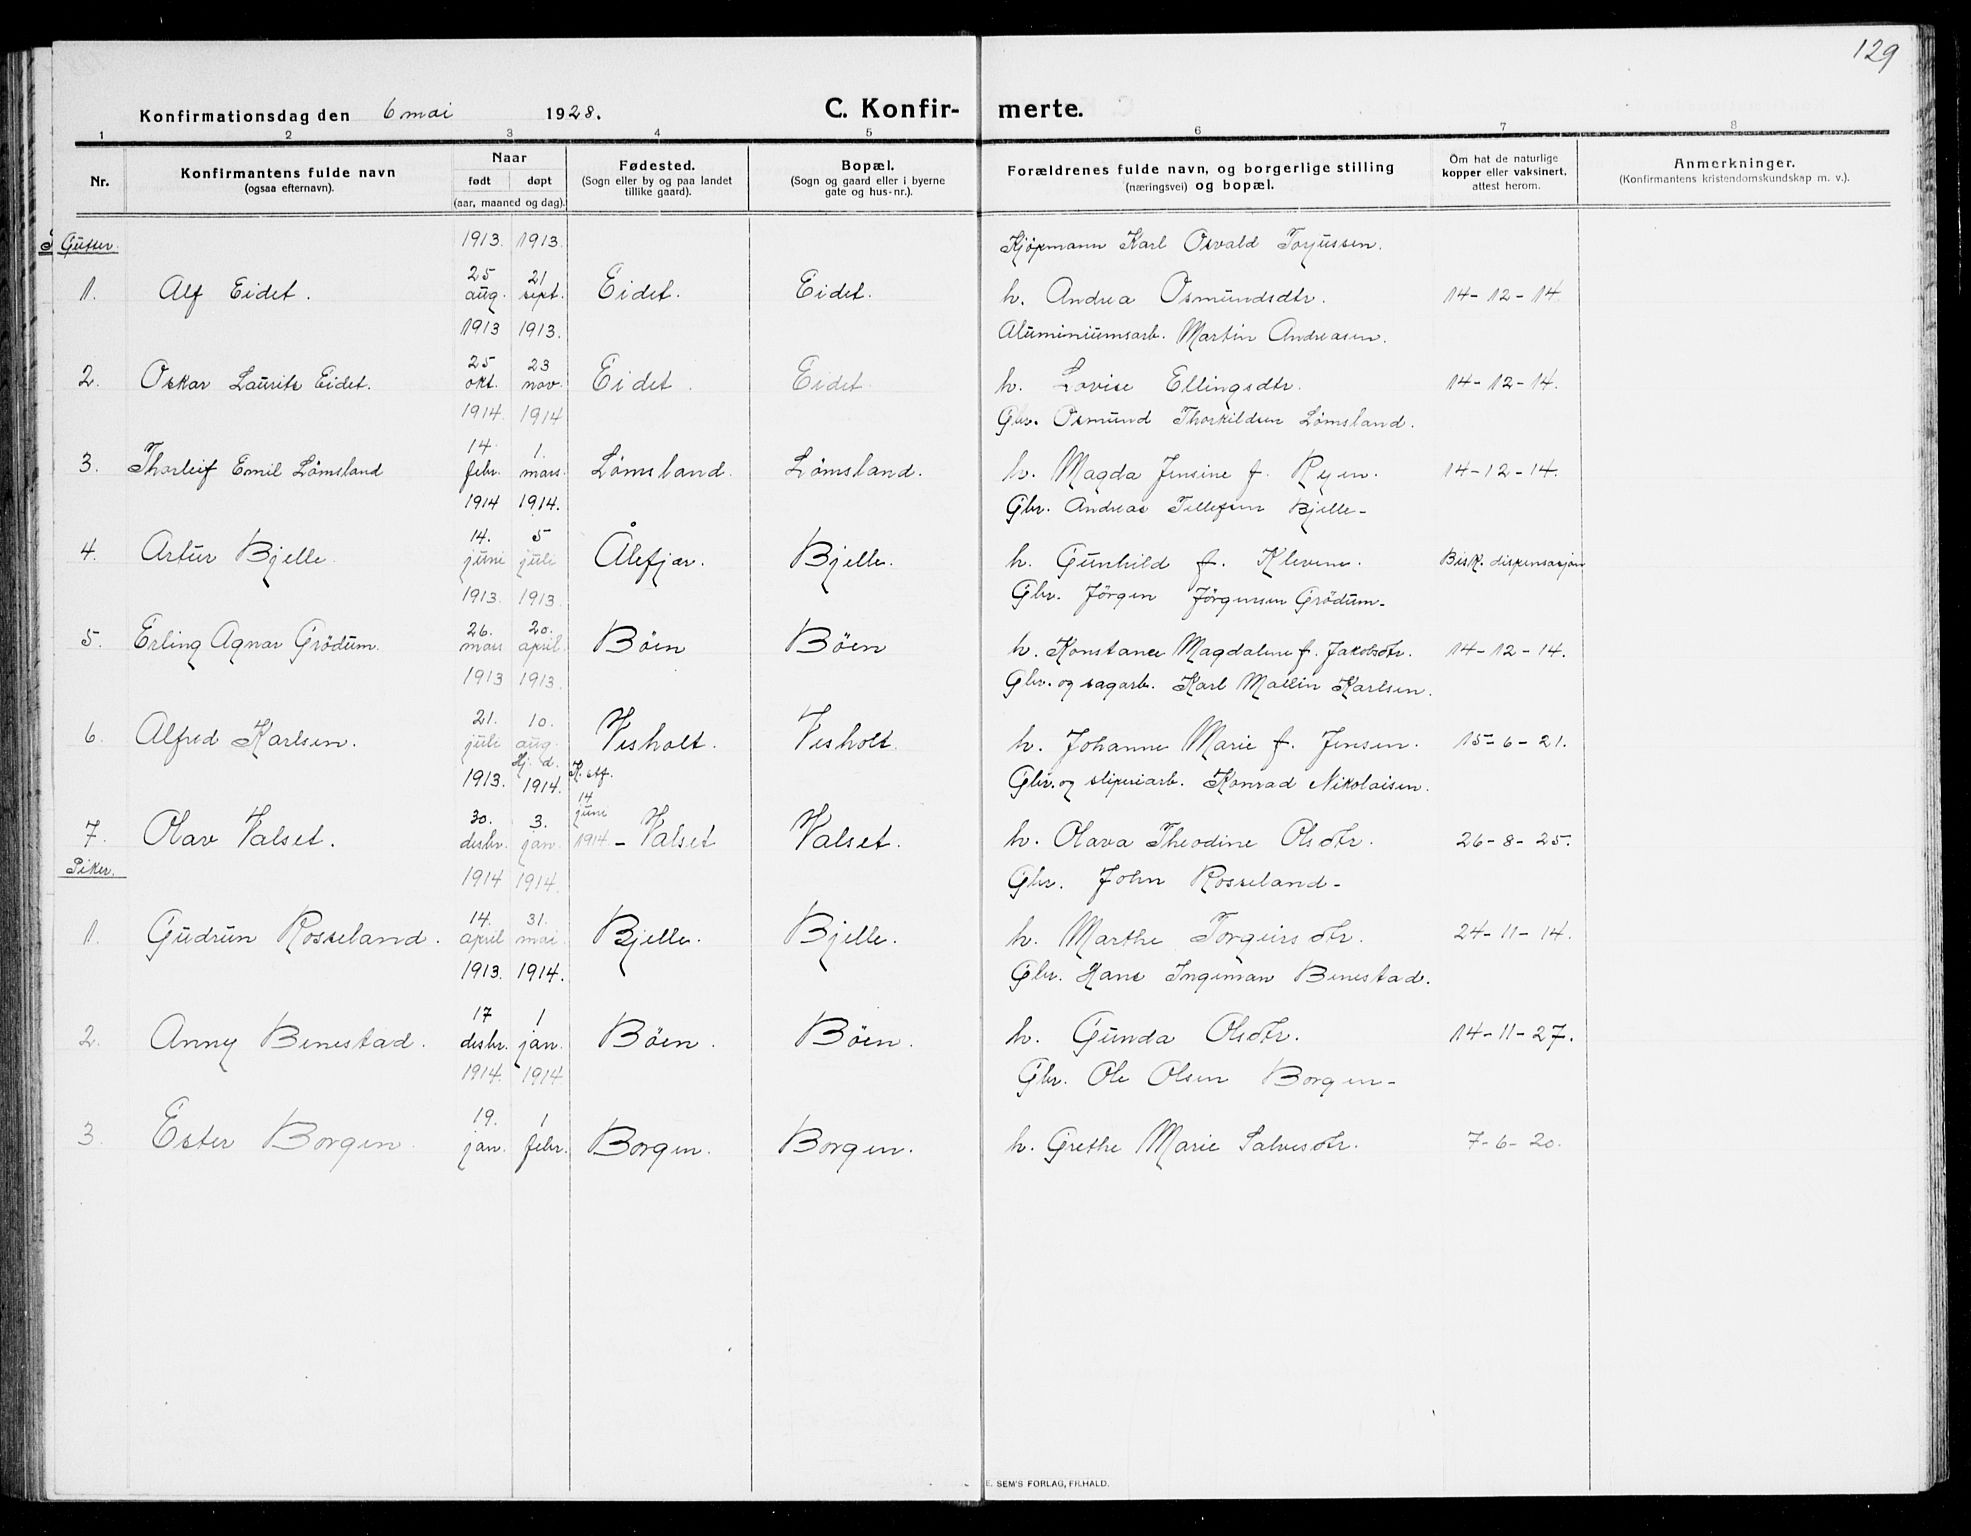 129
Konfirmationsdag den 6 mai 1928. C. Konfir- merte.
1 2 3 4 5 6 7 8
Nr. Konfirmantens fulde navn (ogsaa efternavn). Naar født døpt (aar, maaned og dag). Fødested. (Sogn eller by og paa landet tillike gaard). Bopæl. (Sogn og gaard eller i byerne gate og hus-nr.). Forældrenes fulde navn, og borgerlige stilling (næringsvei) og bopæl. Om hat de naturlige kopper eller vaksinert, attest herom. Anmerkninger. (Konfirmantens kristendomskundskap m. v.).
Gutter. 1913. 1913. Kjøpmann Karl Osvald Torjussen.
1. Alf Eidet. 25 aug. 21 sept. Eidet. Eidet. h. Andrea Osmundsdtr. 14-12-14.
1913 1913. Aluminiumsarb. Martin Andreasen.
2. Oskar Laurits Eidet. 25 okt. 23 nov. Eidet. Eidet. h. Lovise Ellingsdtr. 14-12-14.
1914. 1914 Gbr. Osmund Thorkildsen Lömsland.
3. Thorleif Emil Lömsland 14. febr. 1. mars. Lömsland. Lömsland. h. Magda Jensine f. Ryen. 14-12-14.
1914 1914. Gbr. Andreas Tellefsen Bjelle-
4. Artur Bjelle. 14. juni 5 juli Ålefjær. Bjelle. h. Gunhild f. Klevene. Bisk. dispensasjon
1913. 1913. Gbr. Jörgen Jörgensen Grödum-
5. Erling Agnar Grödum. 26. mars 20. april. Böen Böen h. Konstance Magdalene f. Jakobsdtr. 14-12-14.
1913 1913. Gbr. og sagarb. Karl Mallin Karlsen.
6. Alfred Karlsen. 21. juli 10. aug. Vesholt. Vesholt. h. Johanne Marie f. Jensen. 15-6-21.
1913. Hj. d. 1914. K. stf. Gbr. og sliperiarb. Konrad Nikolaisen.
7. Olav Valset. 30. desbr. 3. jan. 14 juni 1914 - Valset Valset. h. Olava Theodine Olsdtr. 26-8-25.
Piker. 1914 1914. Gbr. John Rosseland-
1. Gudrun Rosseland. 14. april 31. mai. Bjelle. Bjelle. h. Marthe Torgeirsdtr. 24-11-14.
1913. 1914. Gbr. Hans Ingeman Benestad.
2. Anny Benestad. 17 desbr. 1 jan. Böen. Böen. h. Gunda Olsdtr. 14-11-27.
1914. 1914 Gbr. Ole Olsen Borgen-
3. Ester Borgen. 19. jan. 1 febr. Borgen. Borgen. h. Grethe Marie Salvesdtr. 7-6-20.
E. SEM'S FORLAG, FR.HALD.